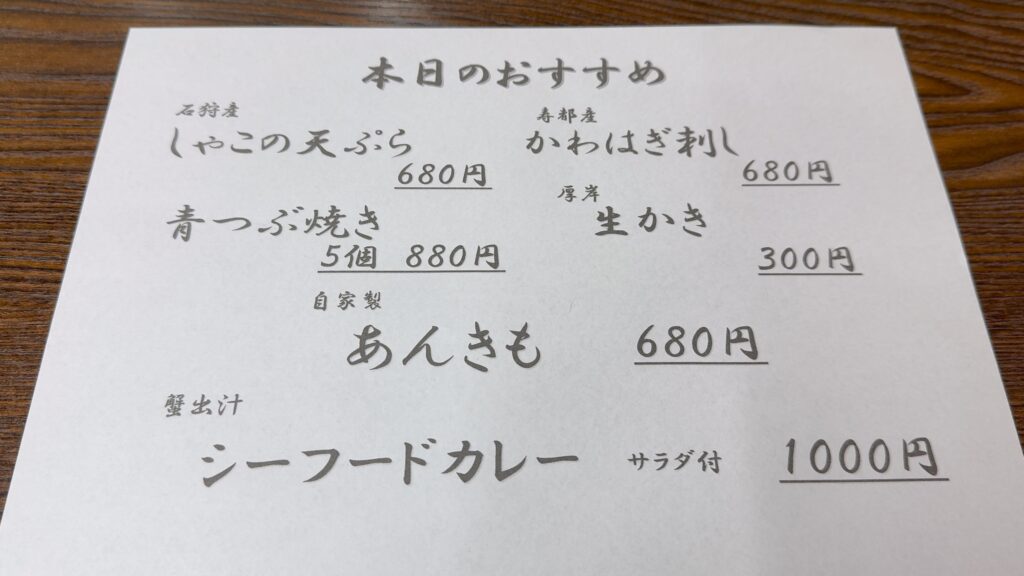 本日のおすすめ
石狩産
しゃこの天ぷら
680円
寿都産
かわはぎ刺し
680円
青つぶ焼き
5個 880円
厚岸
生かき
300円
自家製
あんきも 680円
蟹出汁
シーフードカレー サラダ付 1000円